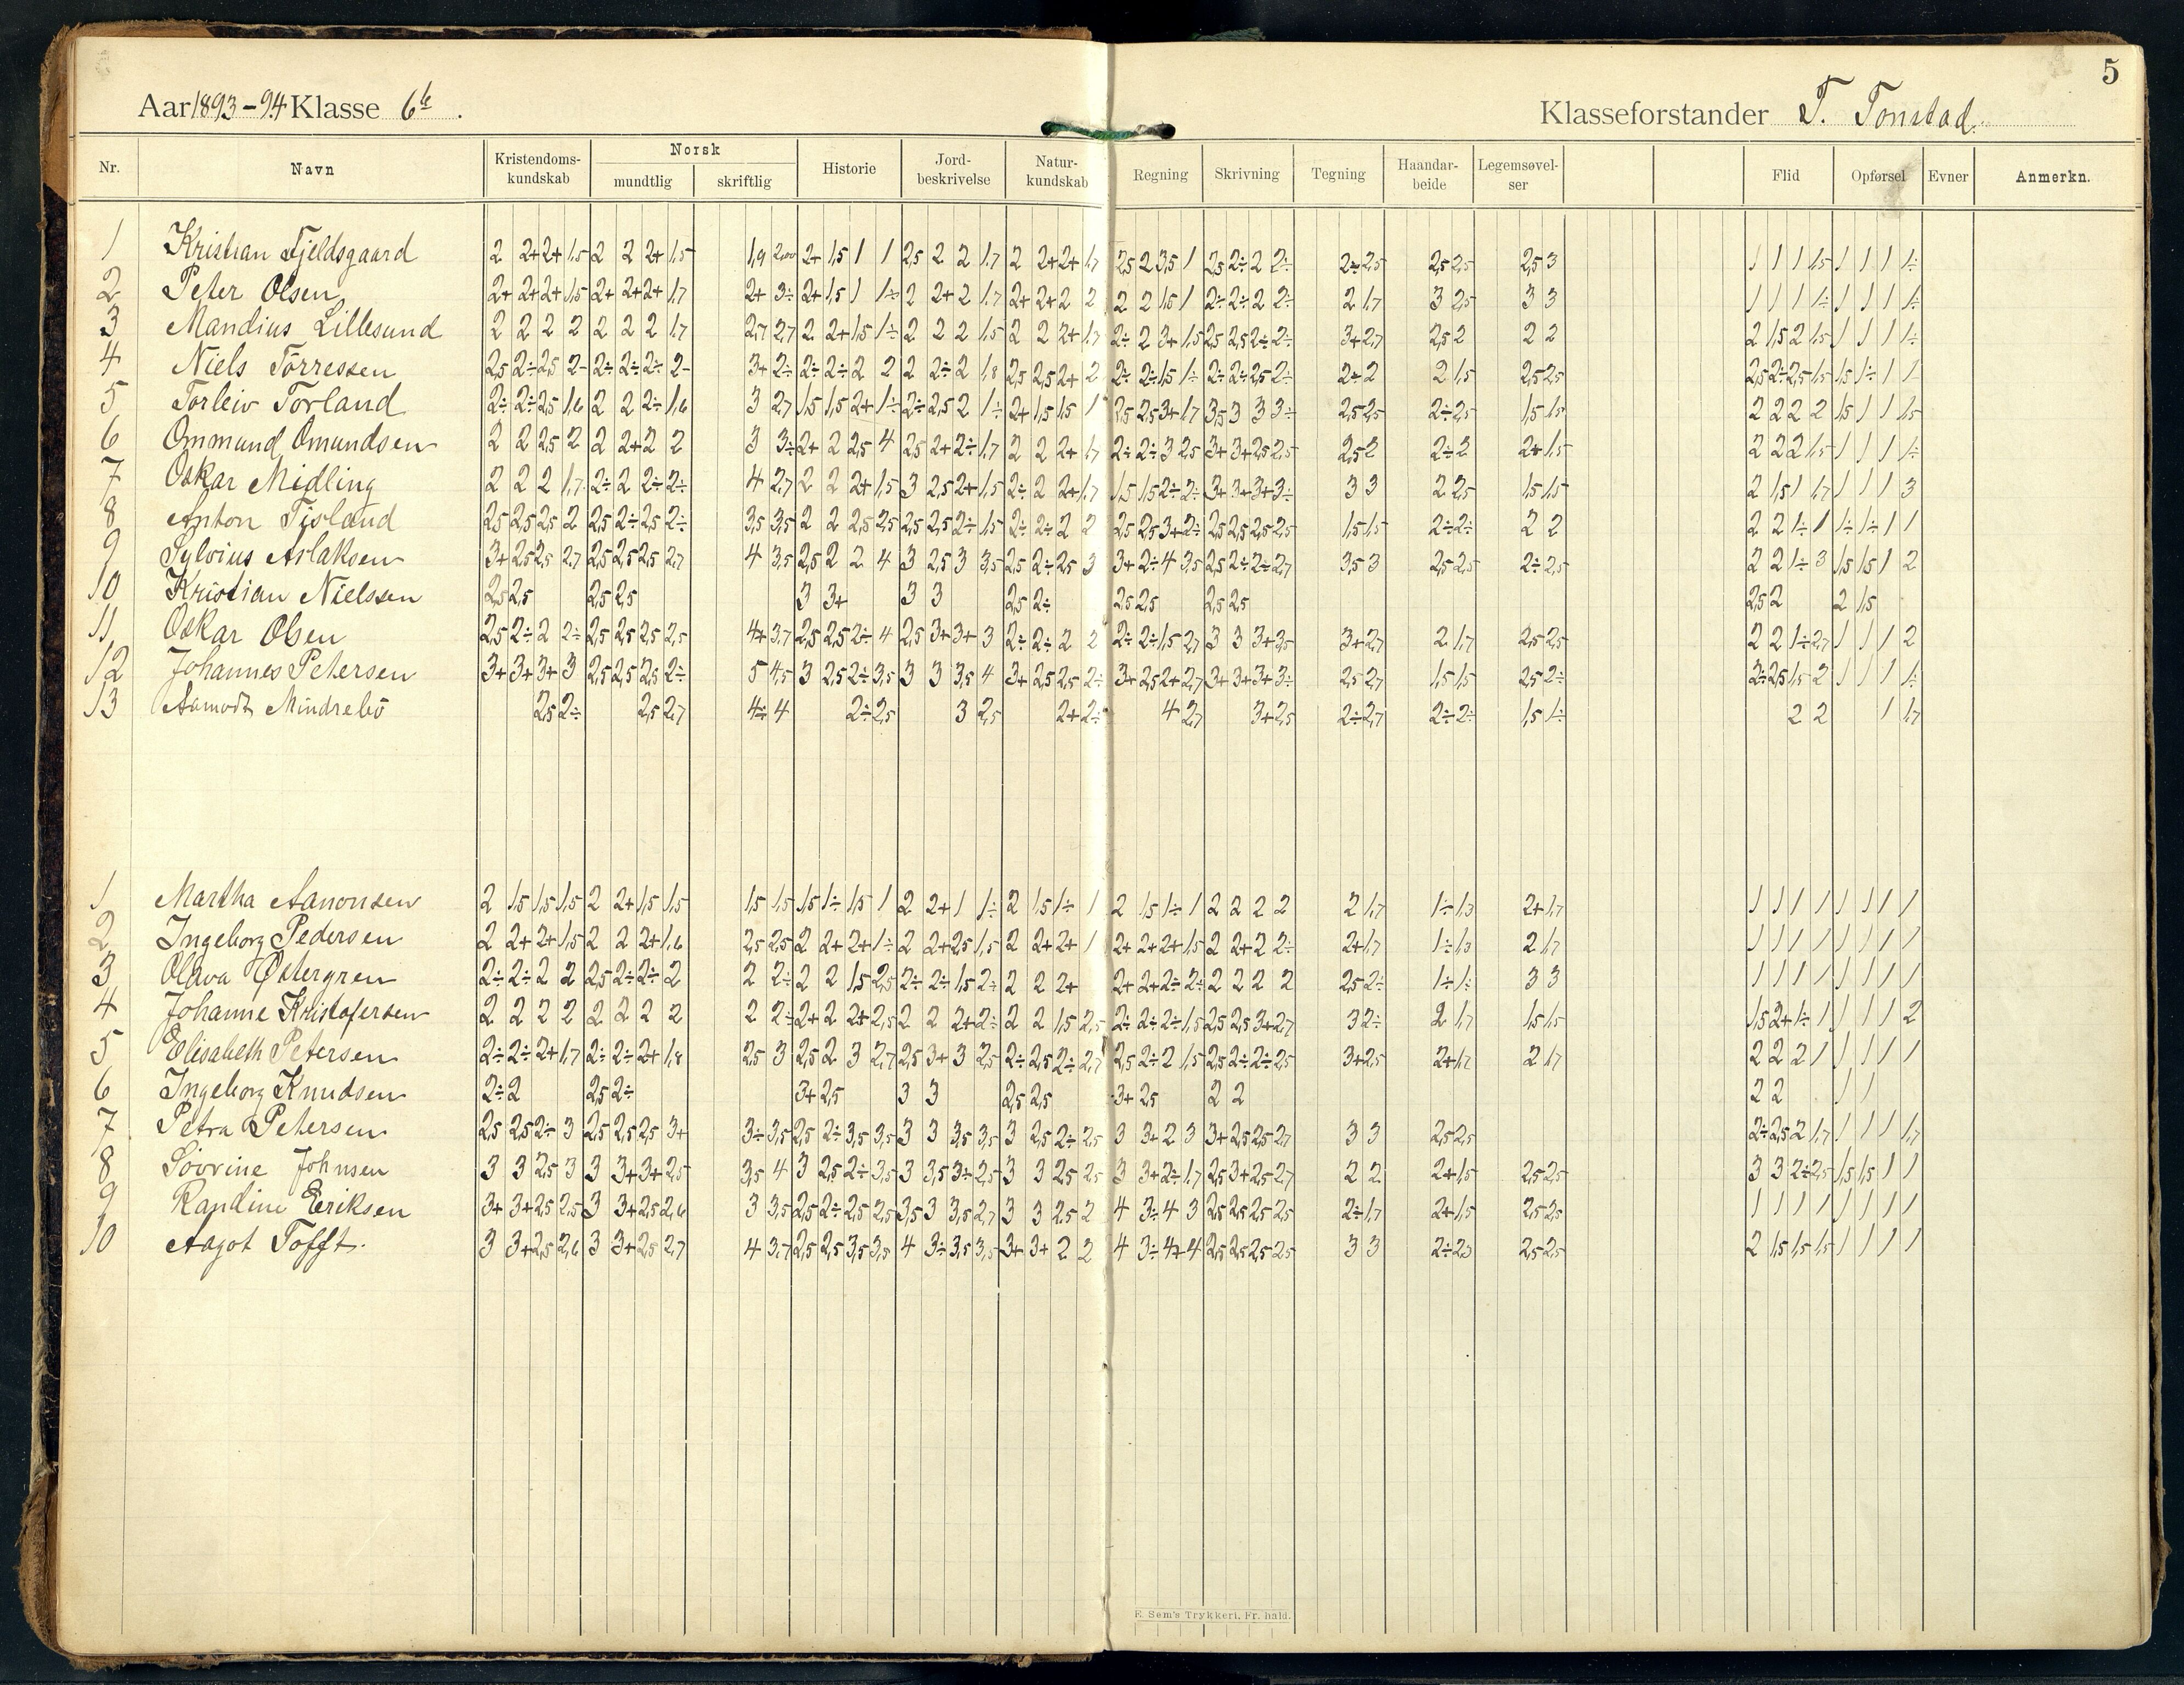 5
Aar 1893-94 Klasse 6te. Klasseforstander T. Tonstad.
Nr. Navn Kristendoms-kundskab Norsk mundtlig skriftlig Historie Jord-beskrivelse Natur-kundskab Regning Skrivning Tegning Haandar-beide Legemsøvel-ser Flid Opførsel Evner Anmerkn.
1 Kristian Fjeldsgaard 2 2+ 2+ 1,5 2 2 2+ 1,5 1,9 2+ 1,5 1 1 2,5 2 2 1,7 2 2+ 2+ 1,7 2,5 2 3,5 1 2,5 2÷ 2 2÷ 2÷ 2,5 2,5 2,5 2,5 3 1 1 1 1,5 1 1 1 1÷
2 Peter Olsen 2+ 2+ 2+ 1,5 2+ 2+ 2+ 1,7 2+ 3÷ 2+ 1,5 1 1÷ 2 2+ 2 1,7 2+ 2+ 2 2 2 2 1,5 1 2÷ 2÷ 2 2÷ 2 1,7 3 2,5 3 3 1 1 1 1÷ 1 1 1 1÷
3 Mandius Lillesund 2 2 2 2 2 2 2 1,7 2,7 2,7 2 2+ 1,5 1÷ 2 2 2 1,5 2 2 2+ 1,7 2÷ 2 3+ 1,5 2,5 2,5 2÷ 2÷ 3+ 2,7 2,5 2 2 2 2 1,5 2 1,5 1 1 1 1÷
4 Niels Törressen 2,5 2÷ 2,5 2- 2÷ 2÷ 2÷ 2- 3+ 2÷ 2÷ 2÷ 2 2 2 2÷ 2 1,8 2,5 2,5 2+ 2 2÷ 2÷ 1,5 1÷ 2÷ 2÷ 2,5 2÷ 2÷ 2 2 1,5 2,5 2,5 2,5 2÷ 2,5 1,5 1,5 1÷ 1 1
5 Torleiv Torland 2÷ 2÷ 2,5 1,6 2 2 2÷ 1,6 3 2,7 1,5 1,5 2+ 1÷ 2÷ 2,5 2 1÷ 2+ 1,5 1,5 1 2,5 2,5 3+ 1,7 3,5 3 3 3÷ 2,5 2,5 2÷ 2,5 1,5 1,5 2 2 2 2 1,5 1 1 1,5
6 Ommund Omundsen 2 2 2,5 2 2 2+ 2 2 3 3÷ 2+ 2 2,5 4 2,5 2+ 2÷ 1,7 2 2 2+ 1,7 2÷ 2÷ 3 2,5 3+ 3+ 2,5 2,5 2,5 2 2÷ 2 2+ 1,5 2 2 2 1,5 1 1 1 1÷
7 Oskar Midling 2 2 2 1,7 2÷ 2 2÷ 2÷ 4 2,7 2 2 2+ 1,5 3 2,5 2+ 1,5 2÷ 2 2+ 1,7 1,5 1,5 2÷ 2÷ 3+ 3+ 3+ 3÷ 3 3 2 2,5 1,5 1,5 2 1,5 1 1,7 1 1 1 3
8 Anton Tjsland 2,5 2,5 2,5 2 2,5 2÷ 2,5 2÷ 3,5 3,5 2 2 2,5 2,5 2,5 2,5 2÷ 1,5 2÷ 2÷ 2 2 2,5 2,5 3+ 2÷ 2,5 2,5 2,5 2,5 1,5 1,5 2÷ 2÷ 2 2 2 2 1÷ 1 1÷ 1÷ 1 1
9 Sylvius Aslaksen 3+ 2,5 2,5 2,7 2,5 2,5 2,5 2,7 4 3,5 2,5 2 2 4 3 2,5 3 3,5 2,5 2÷ 2,5 3 3+ 2÷ 4 3,5 2,5 2÷ 2÷ 2,7 3,5 3 2,5 2,5 2÷ 2,5 2 2 1÷ 3 1,5 1,5 1 2
10 Kristian Nielssen 2,5 2,5 2,5 2,5 3 3+ 3 3 2,5 2÷ 2,5 2,5 2,5 2,5 2,5 2 2 1,5
11 Oskar Olsen 2,5 2÷ 2 2÷ 2,5 2,5 2,5 2,5 4+ 3,7 2,5 2,5 2÷ 4 2,5 3+ 3+ 3 2÷ 2÷ 2 2 2÷ 2÷ 1,5 2,7 3 3 3+ 3,5 3+ 2,7 2 1,7 2,5 2,5 2 2 1÷ 2,7 1 1 1 2
12 Johannes Petersen 3+ 3+ 3+ 3 2,5 2,5 2,5 2÷ 5 4,5 3 2,5 2÷ 3,5 3 3 3,5 4 3+ 2,5 2,5 2÷ 3+ 2,5 2+ 2,7 3+ 3+ 3+ 3÷ 2,5 2,7 1,5 1,5 2,5 2÷ 2÷ 2,5 1,5 2 1 1 1 1÷
13 Aamodt Mindrebö 2,5 2÷ 2,5 2,7 4÷ 4 2÷ 2,5 3 2,5 2+ 2÷ 4 2,7 3+ 2,5 2÷ 2,7 2÷ 2÷ 1,5 1÷ 2 2 1 1,7
1 Martha Aanonsen 2 1,5 1,5 1,5 2 2+ 1,5 1,5 1,5 1,5 1,5 1÷ 1,5 1 2 2+ 1 1÷ 2 1,5 1÷ 1 2 1,5 1÷ 1 2 2 2 2 2 1,7 1÷ 1,3 2+ 1,7 1 1 1 1 1 1 1 1
2 Ingeborg Pedersen 2 2+ 2+ 1,5 2 2 2+ 1,6 2,5 2,5 2 2+ 2+ 1÷ 2 2+ 2,5 1,5 2 2+ 2+ 1 2+ 2+ 2+ 1,5 2 2+ 2 2÷ 2+ 1,7 1÷ 1,3 2 1,7 1 1 1 1 1 1 1 1
3 Olava Østergren 2÷ 2÷ 2 2 2,5 2÷ 2÷ 2 2 2÷ 2 2 1,5 2,5 2÷ 2÷ 1,5 2÷ 2 2 2+ 2+ 2+ 2÷ 2÷ 2 2 2 2 2,5 2÷ 1÷ 1÷ 3 3 1 1 1 1 1 1 1 1
4 Johanne Kristofersen 2 2 2 2 2 2 2 2 2 2÷ 2+ 2 2+ 2,5 2 2 2+ 2÷ 2 2 1,5 2,5 2÷ 2÷ 2÷ 1,5 2,5 2,5 3+ 2,7 3 2÷ 2 1,7 1,5 1,5 1,5 2+ 1÷ 1 1 1 1 2
5 Elisabeth Petersen 2÷ 2÷ 2+ 1,7 2÷ 2÷ 2+ 1,8 2,5 3 2,5 2 3 2,7 2,5 3+ 3 2,5 2÷ 2,5 2÷ 2,7 2,5 2÷ 2 1,5 2,5 2÷ 2÷ 2,5 3+ 2,5 2+ 1,7 2 1,7 2 2 2 1 1 1 1 1
6 Ingeborg Knudsen 2÷ 2 2,5 2÷ 3+ 2,5 3 3 2,5 2,5 3+ 2,5 2 2 2 2 1 1
7 Petra Petersen 2,5 2,5 2÷ 3 2,5 2,5 2,5 3+ 3÷ 3,5 2,5 2÷ 3,5 3,5 3 3 3,5 3,5 3 2,5 2÷ 2,5 3 3+ 2 3 3+ 2,5 2,5 2,7 3 3 2,5 2,5 2÷ 2,5 2 1,7 1 1 1 1,7
8 Sövrine Johnsen 3 3 2,5 3 3 3+ 3+ 2,5 3,5 4 3 2,5 2÷ 3,5 3 3,5 3÷ 2,5 3 3 2,5 2,5 3 3+ 2÷ 1,7 2,5 3+ 2,5 2,7 2 2 2+ 1,5 2,5 2,5 3 3 2÷ 2,5 1,5 1,5 1 1
9 Randine Eriksen 3+ 3+ 2,5 2,5 3 3+ 2,5 2,6 3 3,5 2,5 2÷ 2,5 2,5 3,5 3 3,5 2,7 3 3 2,5 2 4 3÷ 4 3 2,5 2,5 2,5 2,5 2÷ 1,7 2+ 1,5 2,5 2,5 1 1 1 1 1 1 1 1
10 Aagot Tofft. 3 3+ 2,5 2,6 3 3+ 2,5 2,7 4 3,7 2,5 2,5 3,5 3,5 4 3÷ 3,5 3,5 3+ 3+ 2 2 4 3÷ 4+ 4 2,5 2,5 2,5 2,5 3 3 2÷ 2,3 2,5 2,5 2 1,5 1,5 1,5 1 1 1 1
E. Sem's Trykkeri, Fr. hald.